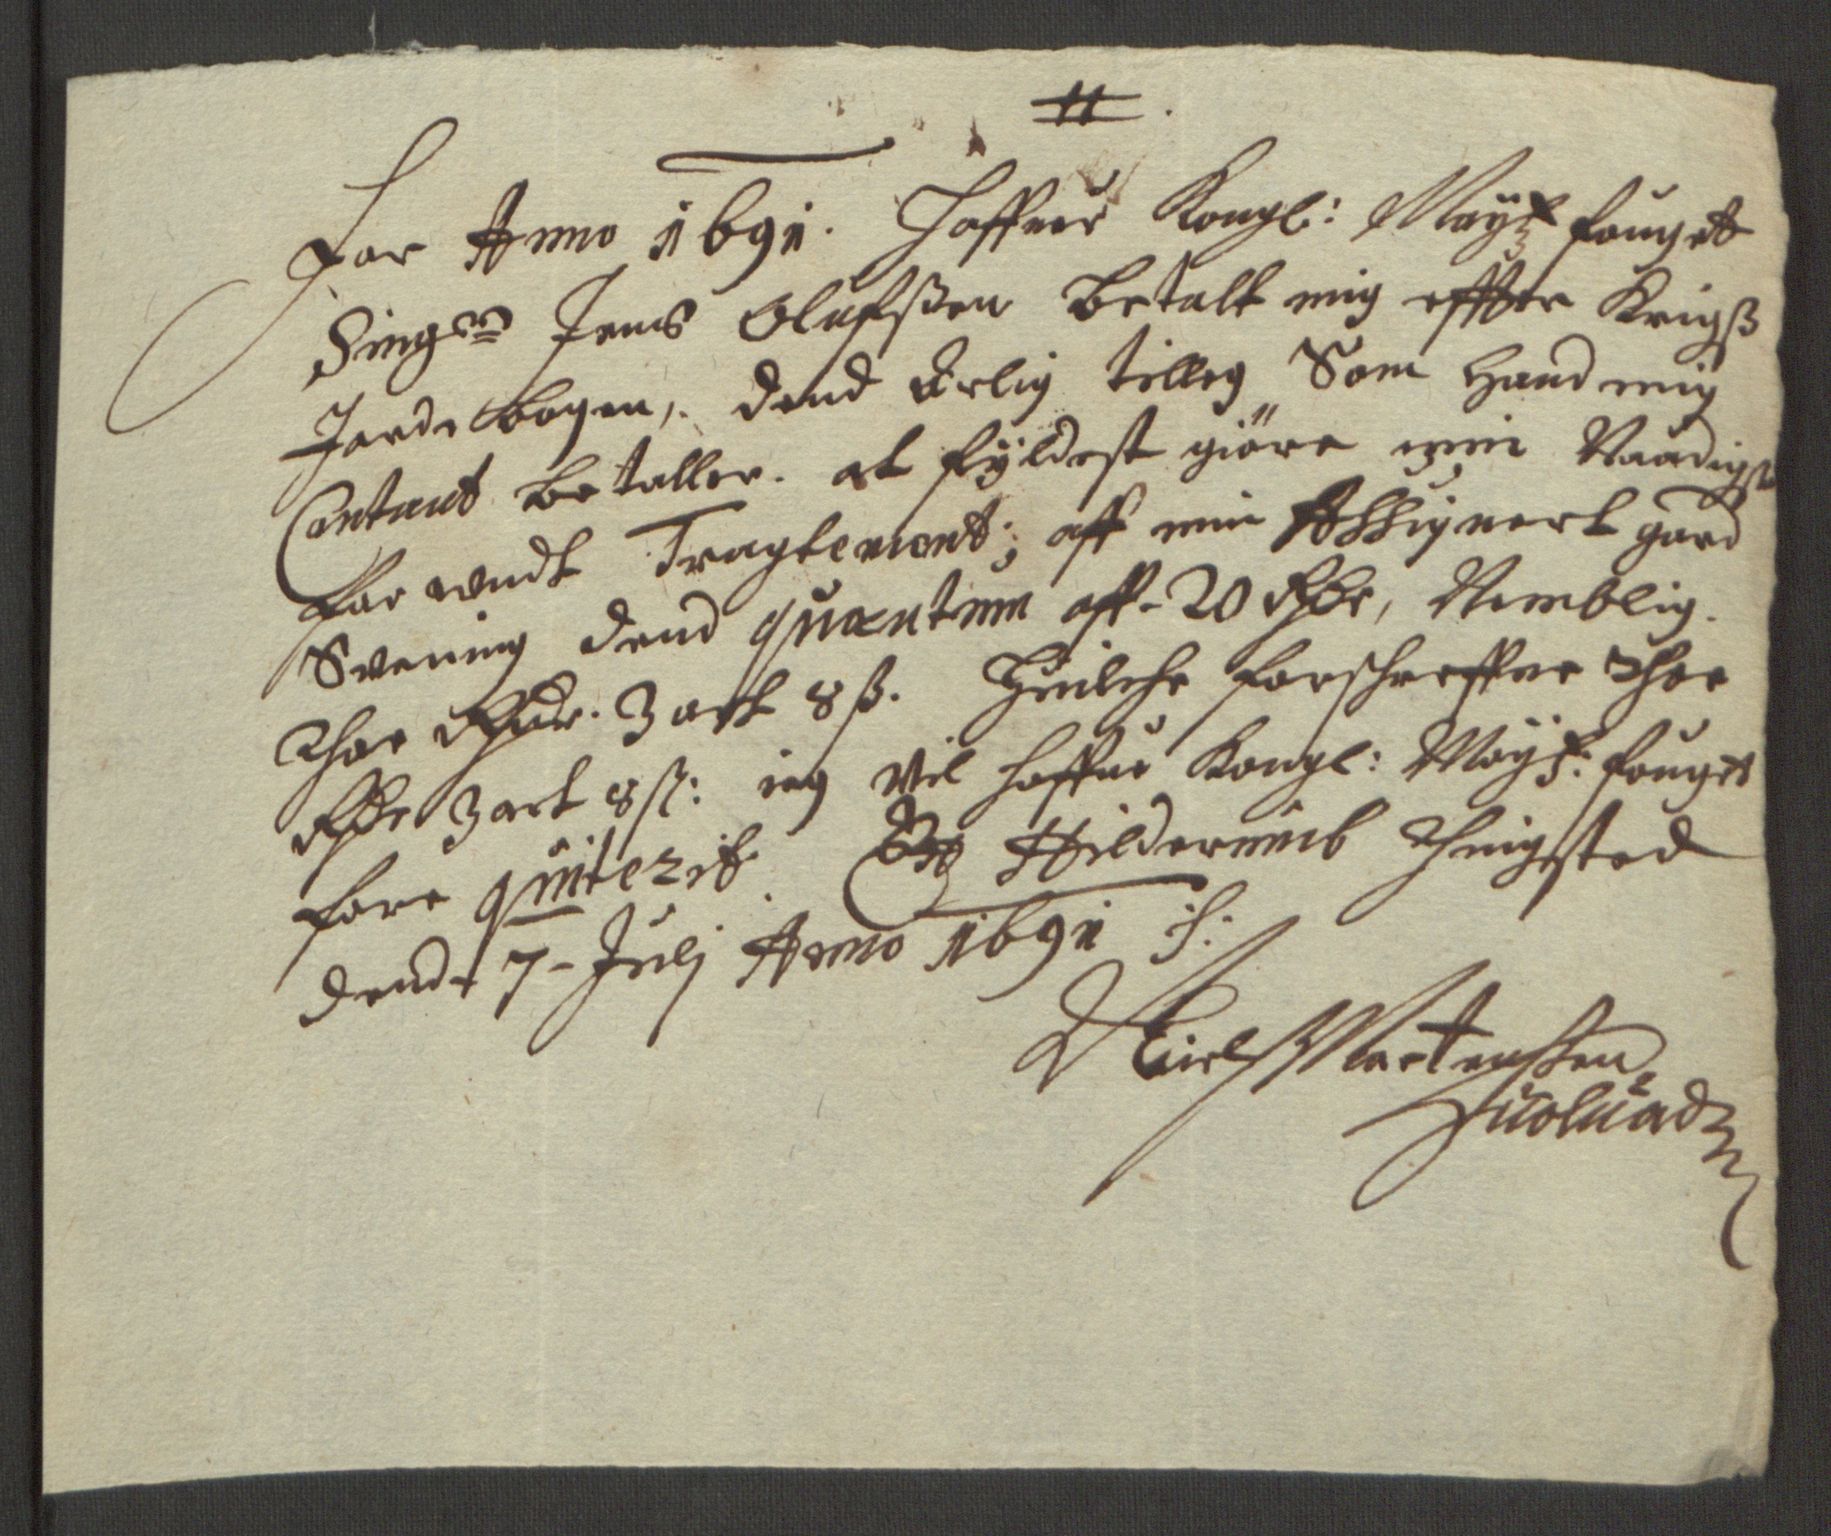 For Anno 1691. Haffuer Kongl: Mayts fouget
Sing:r Jens Olufssen Betalt mig effter Krigs
Jordebogen, dend Årlig tilleg Som Hand mig
Contant betaller. at fyldest giöre min Naadigst
for undt Tragtement; aff min Assignert gard
Svening dend quantum aff- 20 Rdr, Nemblig.
Thoe Rixdr. 3 ort 8 s. Huilche forschreffne Thoe
Rdr 3 ort 8 s: ieg Vil haffue Kongl: Mayts: fouget
fore quiterit. Thingsted
dend 7- Julj Anno 1691 :/:
Niels Mortenssen